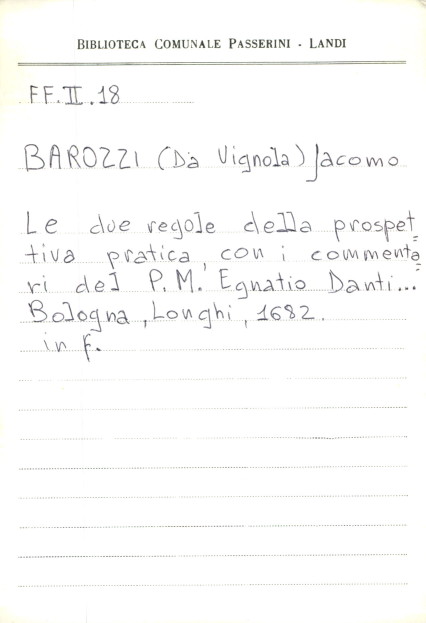 BIBLIOTECA COMUNALE PASSERINI - LANDI
FF.II.18
BAROZZI (Da Vignola) Jacomo
Le due regole della prospet=
tiva pratica, con i commenta=
ri del P.M. Egnatio Danti...
Bologna, Longhi, 1682.
in f.